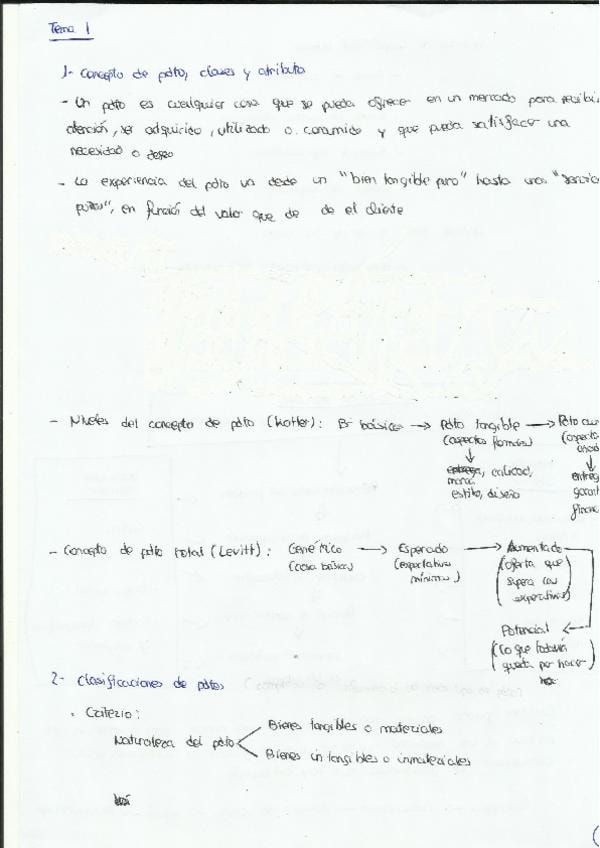 Tema 1
1- Concepto de pdto, clases y atributos
- Un pdto es cualquier cosa que se pueda ofrecer en un mercado para recibir
atención, ser adquirido, utilizado o consumido y que pueda satisfacer una
necesidad o deseo
- La experiencia del pdto va desde un "bien tangible puro" hasta unos "servicios
puros", en función del valor que de de el cliente
- Niveles del concepto de pdto (Kotler): Bº básico → Pdto tangible → Pdto au
(aspectos formales) (aspecto
añad
↓ ↓
entrega, calidad, entreg
marca, garant
estilo, diseño financ
- Concepto de pdto total (Levitt): Genérico → Esperado → Aumentado
(cosa básica) (expectativas (oferta que
mínimas) supera las
expectativas)
Potencial ←
(lo que todavía
queda por hacer)
2- Clasificaciones de pdtos
. Criterio:
Naturaleza del pdto < Bienes tangibles o materiales
Bienes intangibles o inmateriales